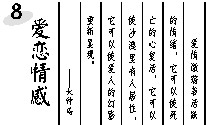 8
爱恋情感
爱情激荡着活跃
的情绪，它可以使死
亡的心复活，它可以
使沙漠里有人居住，
它可以使爱人的幻影
重新显现。
——大仲马